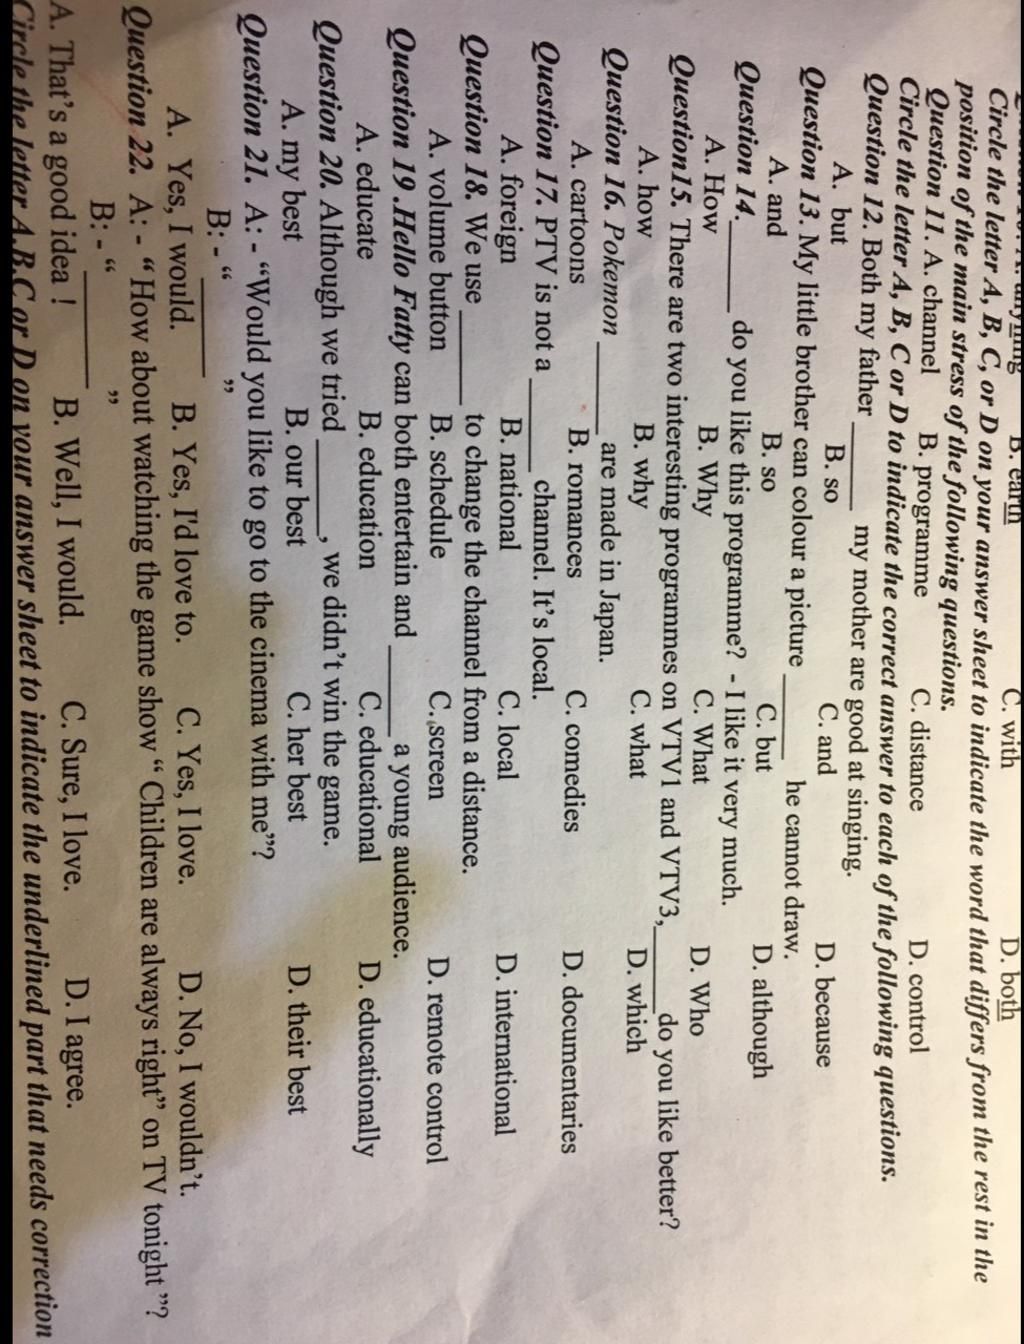 B. earth C. with D. both
Circle the letter A, B, C, or D on your answer sheet to indicate the word that differs from the rest in the
position of the main stress of the following questions.
Question 11. A. channel B. programme C. distance D. control
Circle the letter A, B, C or D to indicate the correct answer to each of the following questions.
Question 12. Both my father ______ my mother are good at singing.
A. but B. so C. and D. because
Question 13. My little brother can colour a picture ______ he cannot draw.
A. and B. so C. but D. although
Question 14.______ do you like this programme? - I like it very much.
A. How B. Why C. What D. Who
Question15. There are two interesting programmes on VTV1 and VTV3,______ do you like better?
A. how B. why C. what D. which
Question 16. Pokemon ______ are made in Japan.
A. cartoons B. romances C. comedies D. documentaries
Question 17. PTV is not a ______ channel. It's local.
A. foreign B. national C. local D. international
Question 18. We use ______ to change the channel from a distance.
A. volume button B. schedule C. screen D. remote control
Question 19 .Hello Fatty can both entertain and ______ a young audience.
A. educate B. education C. educational D. educationally
Question 20. Although we tried ______, we didn't win the game.
A. my best B. our best C. her best D. their best
Question 21. A: - “Would you like to go to the cinema with me”?
B: - “ ______ ”
A. Yes, I would. B. Yes, I'd love to. C. Yes, I love. D. No, I wouldn't.
Question 22. A: - “ How about watching the game show “ Children are always right” on TV tonight ”?
B: - “ ______ ”
A. That's a good idea ! B. Well, I would. C. Sure, I love. D. I agree.
Circle the letter A,B,C or D on your answer sheet to indicate the underlined part that needs correction